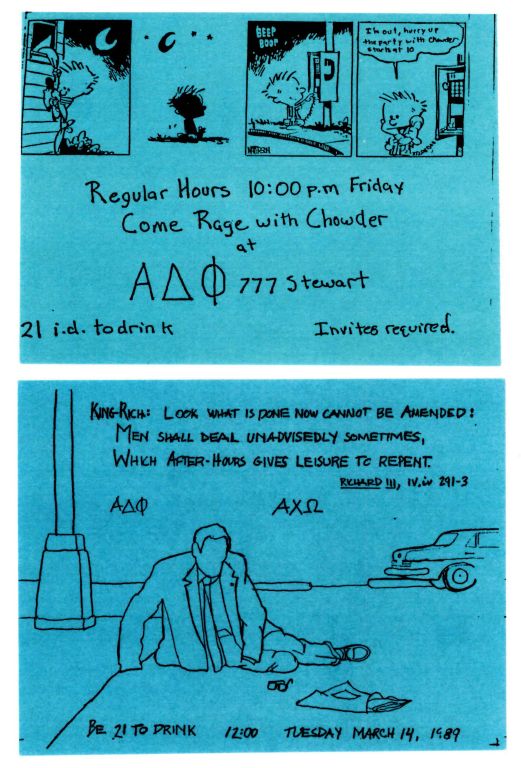 BEEP
BOOP
I'm out, hurry up
the party with Chowder
starts at 10
WATTERSON
Regular Hours 10:00 p.m Friday
Come Rage with Chowder
at
ΑΔΦ 777 Stewart
21 i.d. to drink Invites required.
KING-RICH: LOOK WHAT IS DONE NOW CANNOT BE AMENDED:
MEN SHALL DEAL UNADVISEDLY SOMETIMES,
WHICH AFTER-HOURS GIVES LEISURE TO REPENT.
RICHARD III, IV.iv 291-3
ΑΔΦ ΑΧΩ
BE 21 TO DRINK 12:00 TUESDAY MARCH 14, 1989